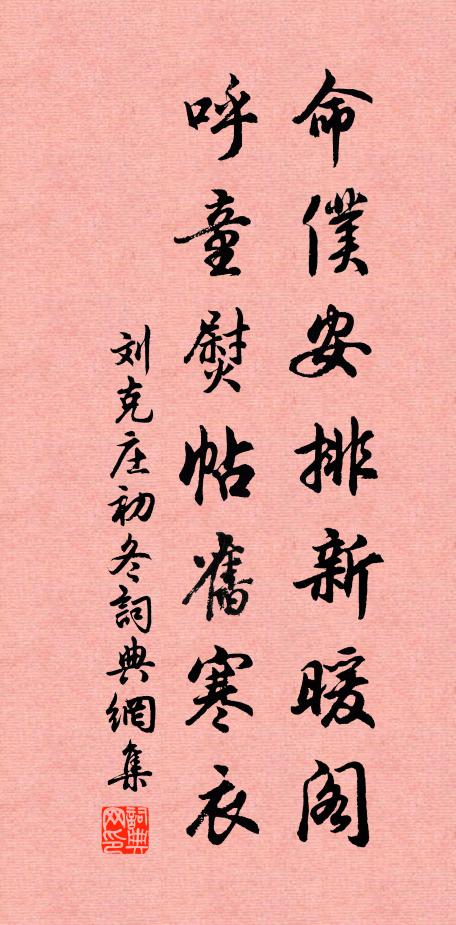 命僕安排新暖阁
呼童熨帖舊寒衣
刘克庄初冬詞典網集
詞典网印